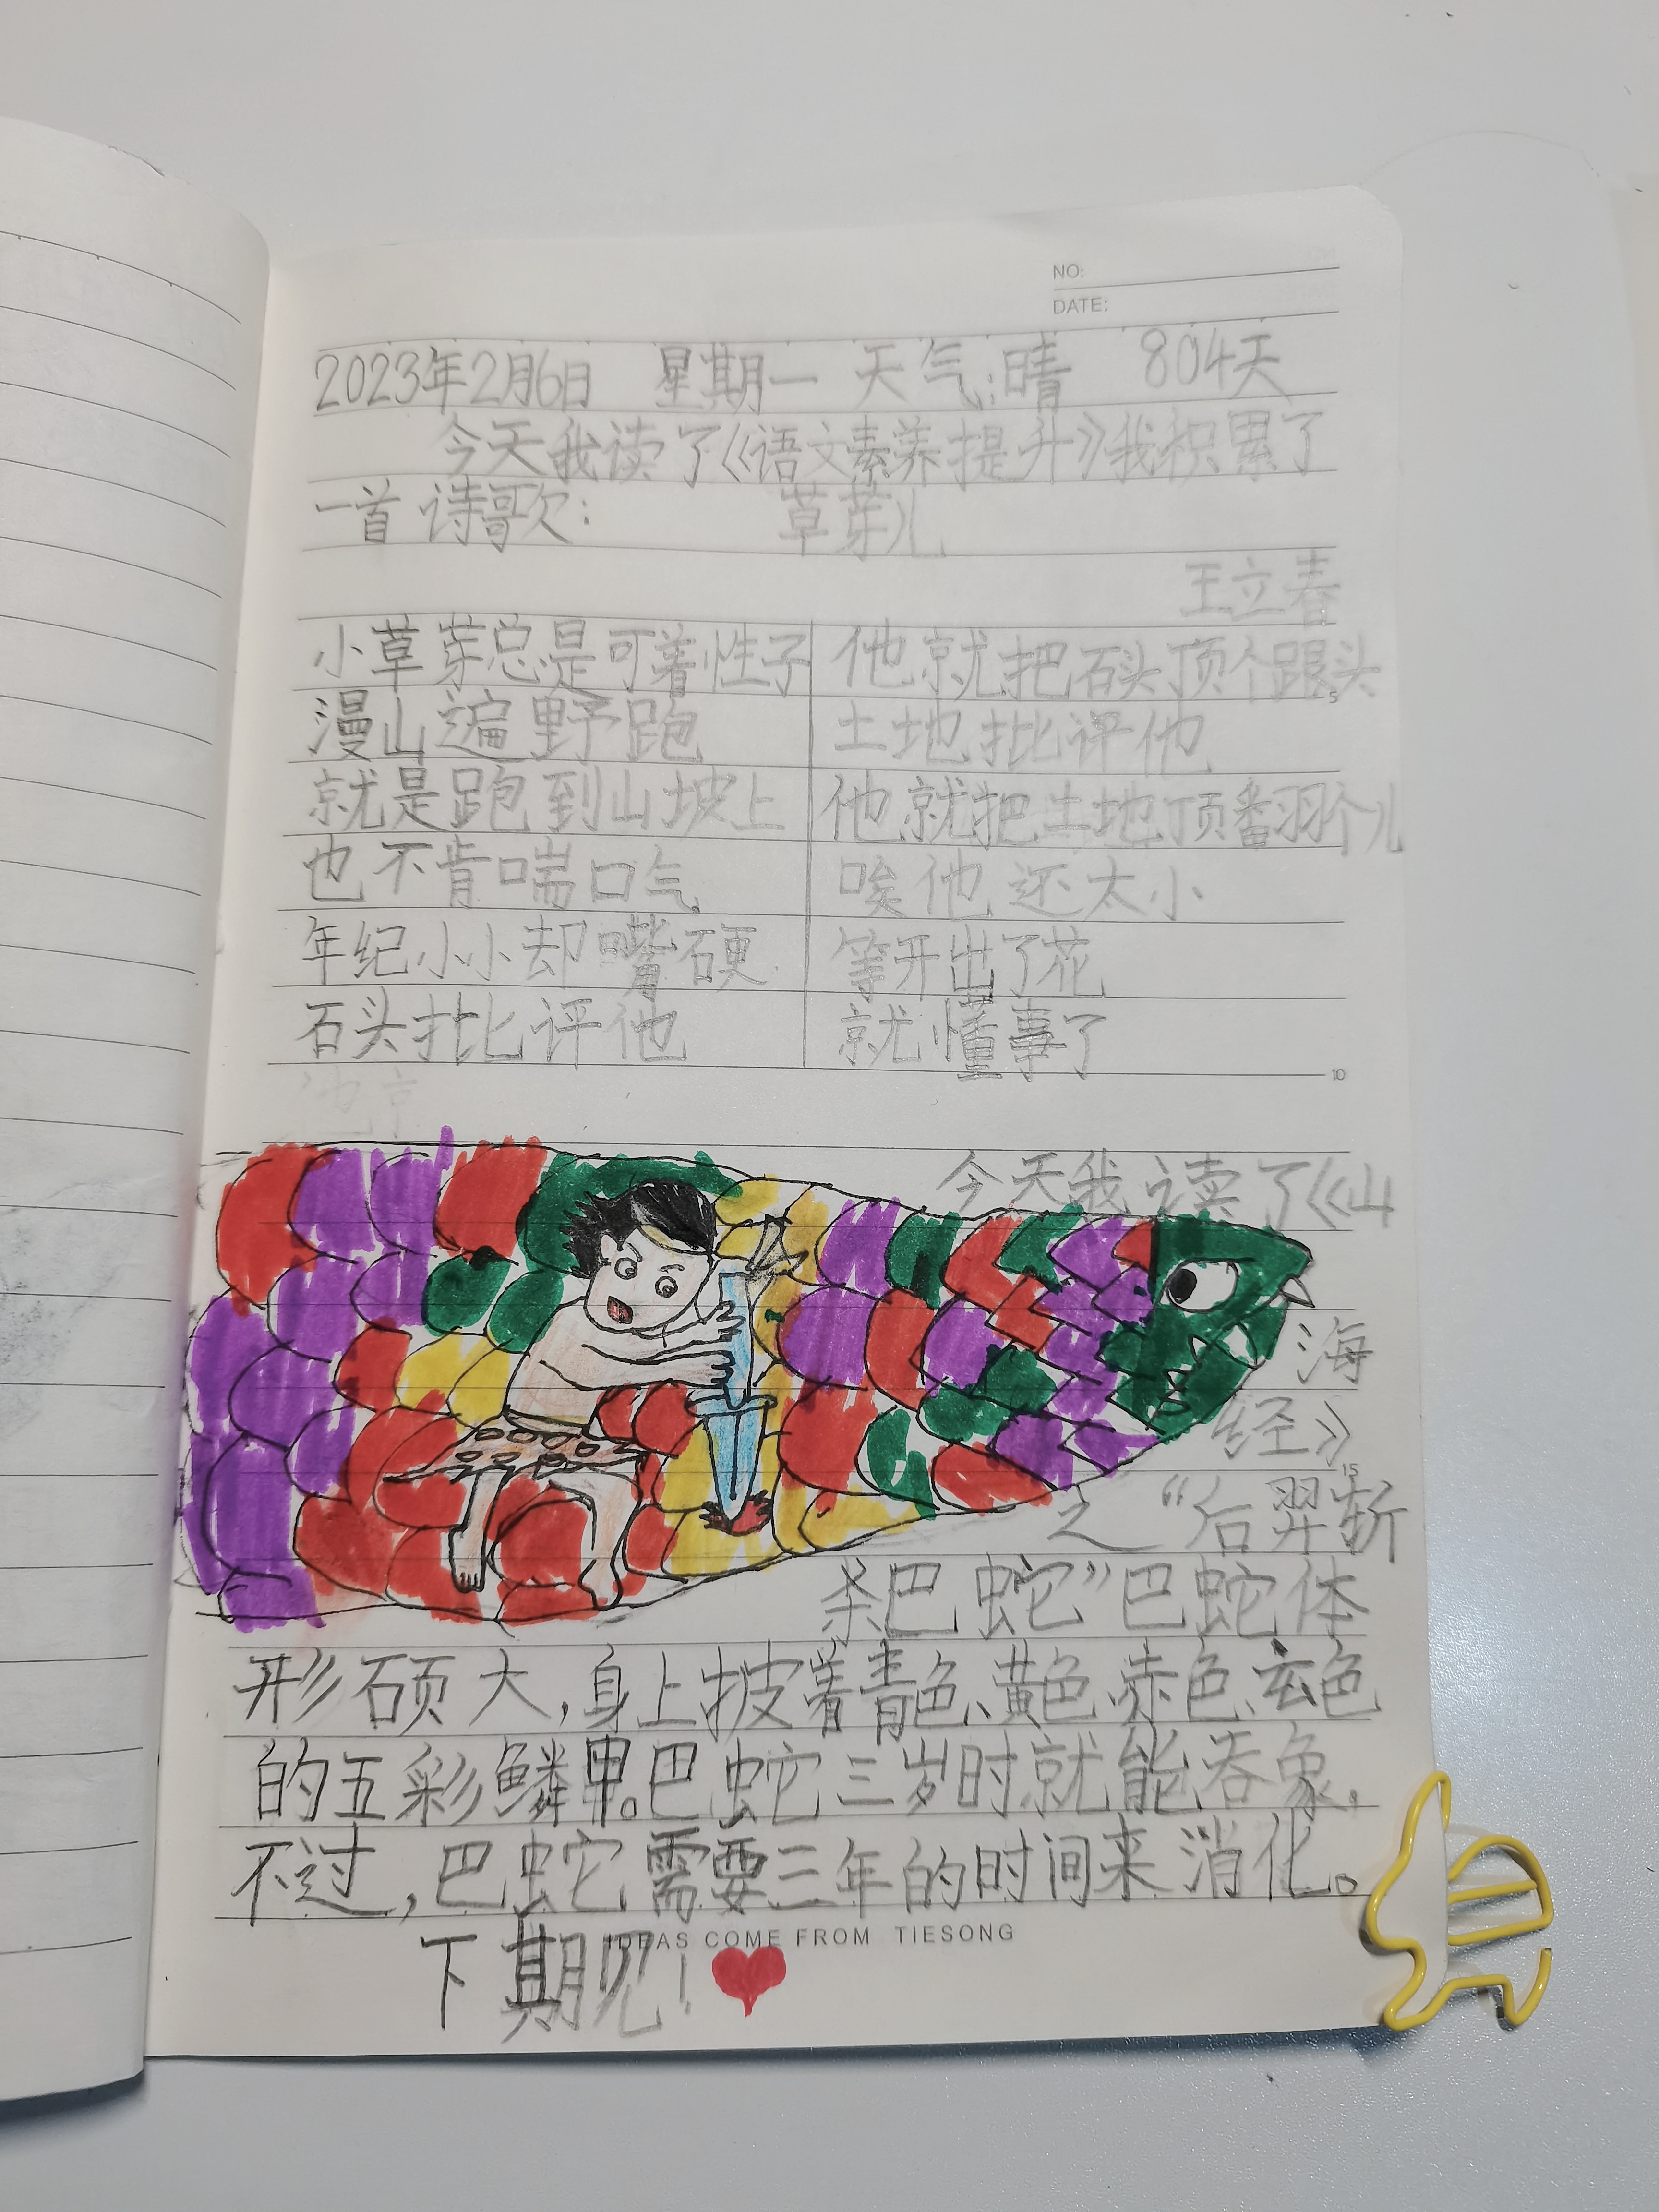 NO:
DATE:
2023年2月6日 星期一 天气:晴 804天
今天我读了《语文素养提升》我积累了
一首诗歌: 草芽儿
王立春
小草芽总是可着性子
漫山遍野跑
就是跑到山坡上
也不肯喘口气
年纪小小却嘴硬
石头批评他
他就把石头顶个跟头
土地批评他
他就把土地顶翻个儿
唉他还太小
等开出了花
就懂事了
5
10
今天我读了《山
海
经》
15
之“后羿斩
杀巴蛇”巴蛇体
形硕大,身上披着青色、黄色、赤色、玄色
的五彩鳞甲。巴蛇三岁时就能吞象,
不过,巴蛇需要三年的时间来消化。
IDEAS COME FROM TIESONG
下期见!